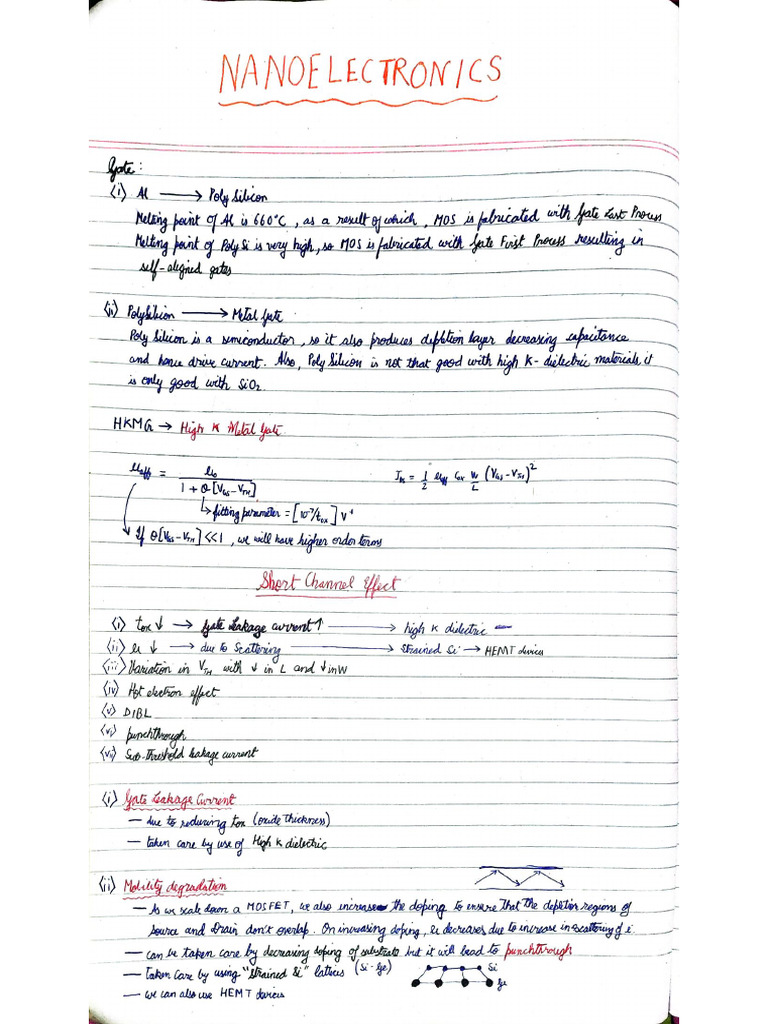 NANOELECTRONICS
Gate:
(i) Al → Poly Silicon
Melting point of Al is 660°C, as a result of which, MOS is fabricated with Gate Last Process
Melting point of Poly Si is very high, so MOS is fabricated with Gate First Process resulting in
self-aligned gates
(ii) PolySilicon → Metal Gate
Poly Silicon is a semiconductor, so it also produces depltion layer decreasing capacitance
and hence drive current. Also, Poly Silicon is not that good with high K-dielectric materials it
is only good with SiO2.
HKMG → High K Metal Gate
μeff = μo / 1 + θ[VGS-VTH]
IDS = 1/2 μeff Cox W/L (VGS-VTH)²
↳ fitting parameter = [10⁻⁷/tox] V⁻¹
If θ[VGS-VTH] <<1, we will have higher order terms
Short Channel Effect
(i) tox ↓ → Gate Leakage current ↑ → high K dielectric
(ii) μ ↓ → due to scattering → Strained Si → HEMT devices
(iii) Variation in VTH with ↓ in L and ↓ in W
(iv) Hot electron effect
(v) DIBL
(vi) punchthrough
(vii) Sub-threshold leakage current
(i) Gate Leakage Current
— due to reducing tox (oxide thickness)
— taken care by use of High K dielectric
(ii) Mobility degradation
— As we scale down a MOSFET, we also increase the doping to ensure that the depletion regions of
source and drain don't overlap. On increasing doping, μ decreases due to increase in scattering of i.
— can be taken care by decreasing doping of substrate but it will lead to punchthrough
— taken care by using "strained Si" lattices (Si-Ge)
Si
Ge
— we can also use HEMT devices